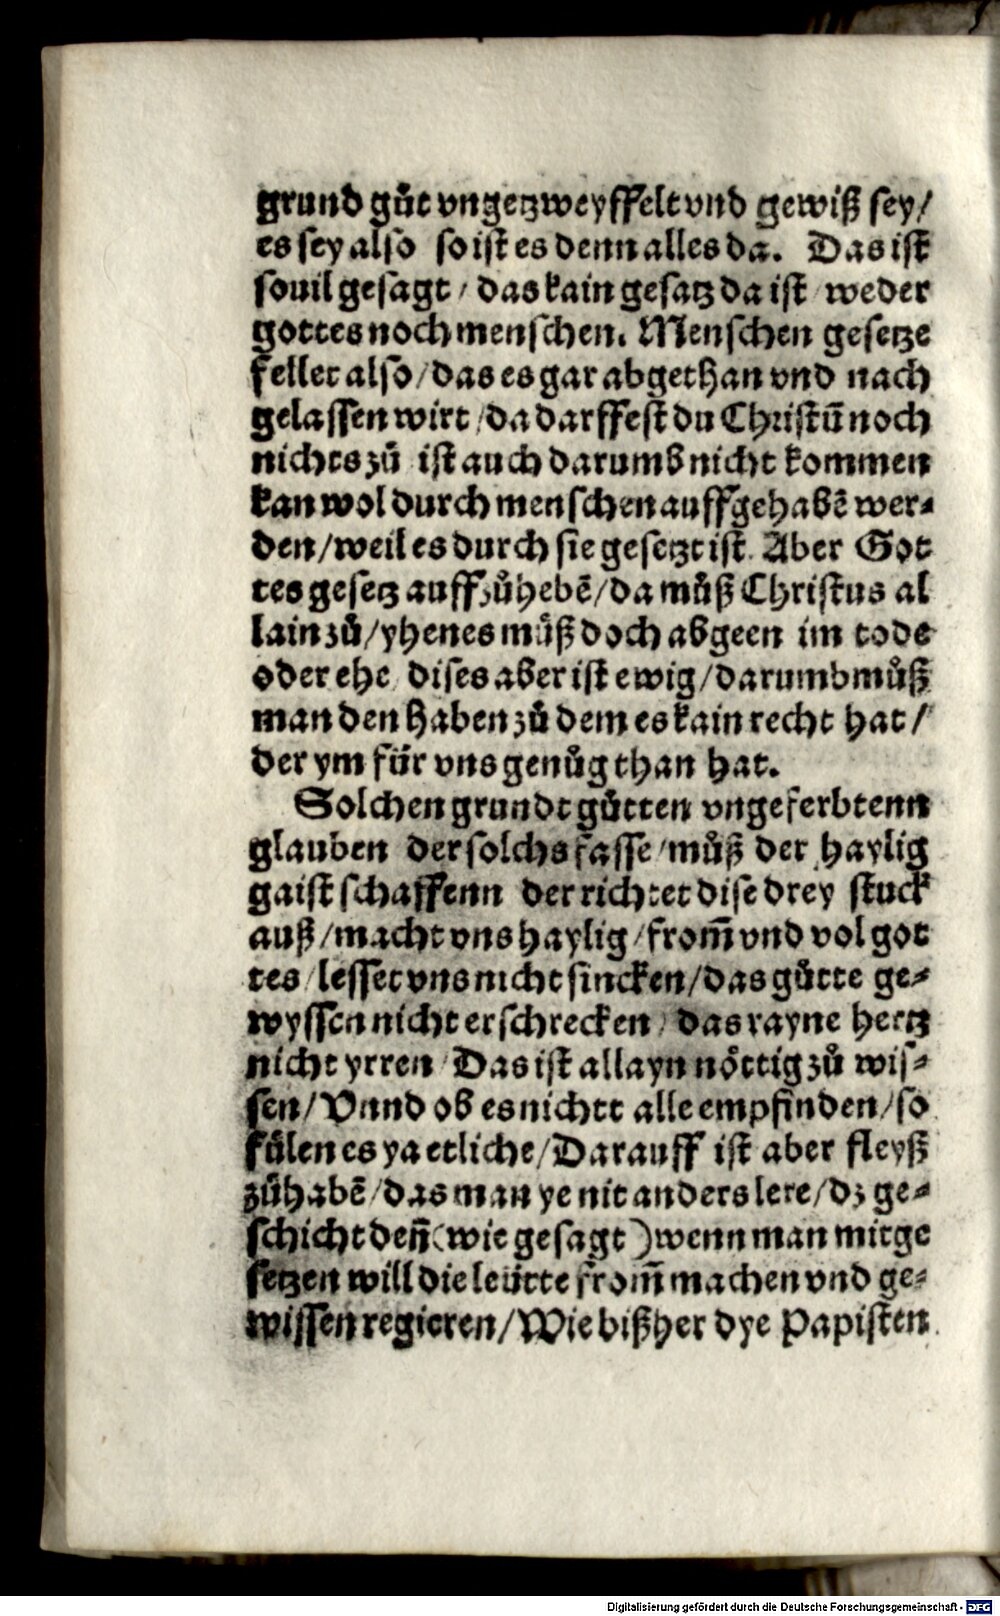 grund gůt vngetzweyffelt vnd gewiß sey/
es sey also so ist es denn alles da. Das ist
souil gesagt / das kain gesatz da ist / weder
gottes noch menschen. Menschen gesetze
fellet also / das es gar abgethan vnd nach
gelassen wirt / da darffest du Christū noch
nichts zů ist auch darumb nicht kommen
kan wol durch menschen auffgehabē wer⸗
den / weil es durch sie gesetzt ist. Aber Got
tes gesetz auffzůhebē / da můß Christus al
lain zů / yhenes můß doch abgeen im tode
oder ehe / dises aber ist ewig / darumb můß
man den haben zů dem es kain recht hat /
der ym für vns genůg than hat.
Solchen grundt gůtten vngeferbtenn
glauben der solchs fasse / můß der haylig
gaist schaffenn der richtet dise drey stuck
auß / macht vns haylig / from̄ vnd vol got
tes / lesset vns nicht sincken / das gůtte ge⸗
wyssen nicht erschrecken / das rayne hertz
nicht yrren / Das ist allayn nöttig zů wis⸗
sen / Vnnd ob es nichtt alle empfinden / so
fůlen es ya etliche / Darauff ist aber fleyß
zůhabē / das man ye nit anders lere / dz ge⸗
schicht den̄ (wie gesagt) wenn man mit ge
setzen will die leütte from̄ machen vnd ge⸗
wissen regieren / Wie bißher dye Papisten
Digitalisierung gefördert durch die Deutsche Forschungsgemeinschaft - DFG